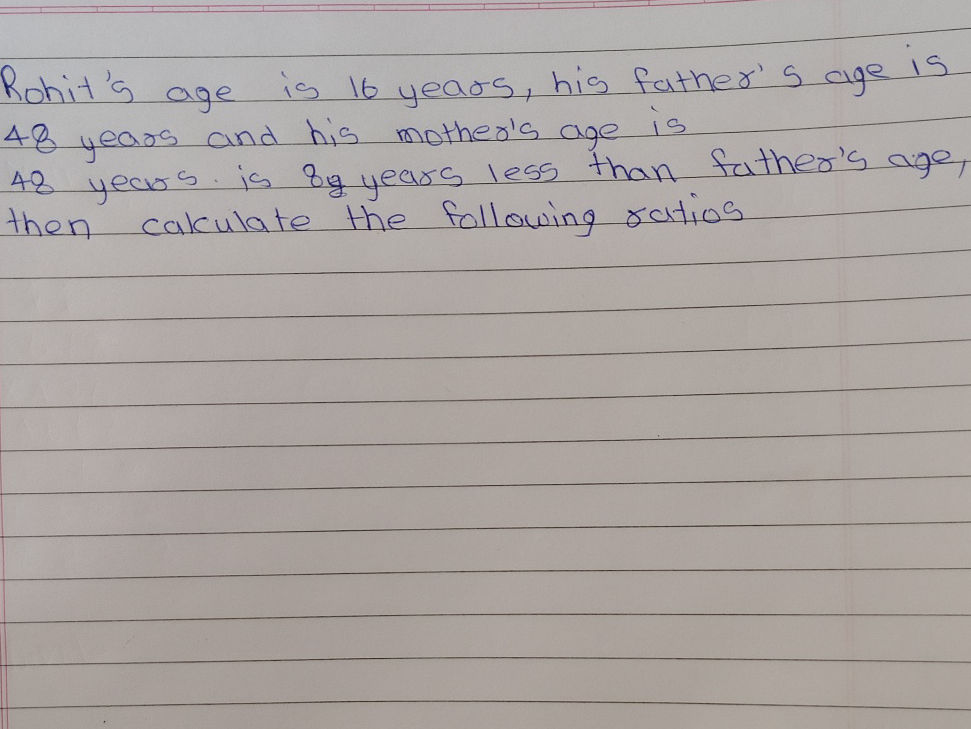 Rohit's age is 16 years, his father's age is
48 years and his mother's age is
48 years. is 8 years less than father's age,
then calculate the following ratios